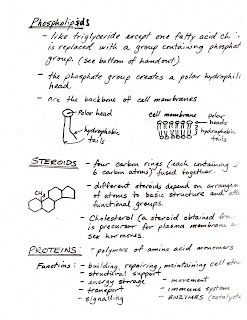 Phospholipids
- like triglyceride except one fatty acid ch
is replaced with a group containing phosphat
group. (see bottom of handout).
- the phosphate group creates a polar hydrophili
head.
- are the backbone of cell membranes
Polar head
hydrophobic
tails
cell membrane
polar
heads
hydrophobic
tails
STEROIDS - four carbon rings (each containing
6 carbon atoms) fused together.
- different steroids depend on arrangem
of atoms to basic structure and
functional groups.
CH3
- Cholesterol (a steroid obtained from
is precursor for plasma membrane
sex hormones.
PROTEINS: - polymers of amino acid monomers
Functions: - building, repairing, maintaining cell
- structural support
- energy storage
- movement
- transport
- immune system
- signalling
- ENZYMES (catalyt